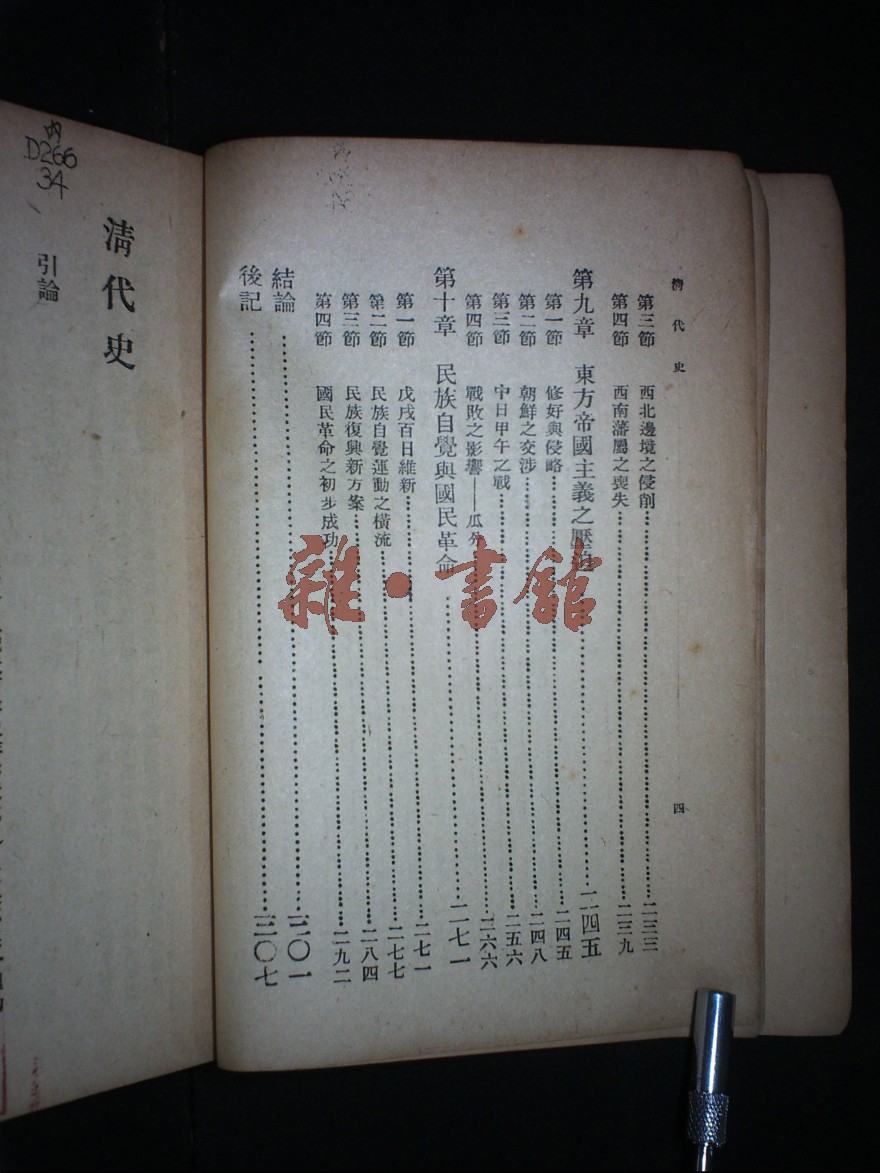 清代史
四
第三節 西北邊境之侵削……二三三
第四節 西南藩屬之喪失……二三九
第九章 東方帝國主義之壓迫……二四五
第一節 修好與侵略……二四五
第二節 朝鮮之交涉……二四八
第三節 中日甲午之戰……二五六
第四節 戰敗之影響——瓜分……二六六
第十章 民族自覺與國民革命……二七一
第一節 戊戌百日維新……二七一
第二節 民族自覺運動之橫流……二七七
第三節 民族復興新方案……二八四
第四節 國民革命之初步成功……二九二
結論……三〇一
後記……三〇七
清代史
引論
D266
34
雜·書館